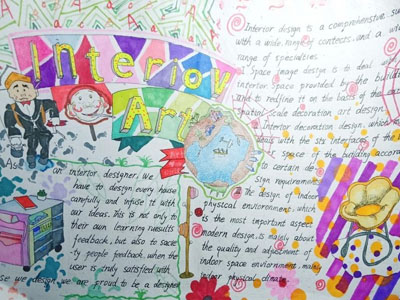 Interiov
Art
Interior design is a comprehensive su
with a wide range of contects, and a wi
range of specialties.
Space image design is to deal wi
Interior Space provided by the buildin
and to redfine it on the basis of the
spatial scale decoration art design
Interior decoration design, which m
with the six interfaces of the
space of the building accord
to certain de
sign requirement
The design of indoor
physical environment which
is the most important aspect
modern design, is mainly about
the quality and adjustment of
indoor space environment, main
indoor physical climate.
As
an interior designer. We
have to design every house
carefully and infuse it with
our ideas. This is not only to
their own learning results
feedback, but also to socie
ty people feedback. when the
user is truly satisfied with
se we design, we are proud to be a designer